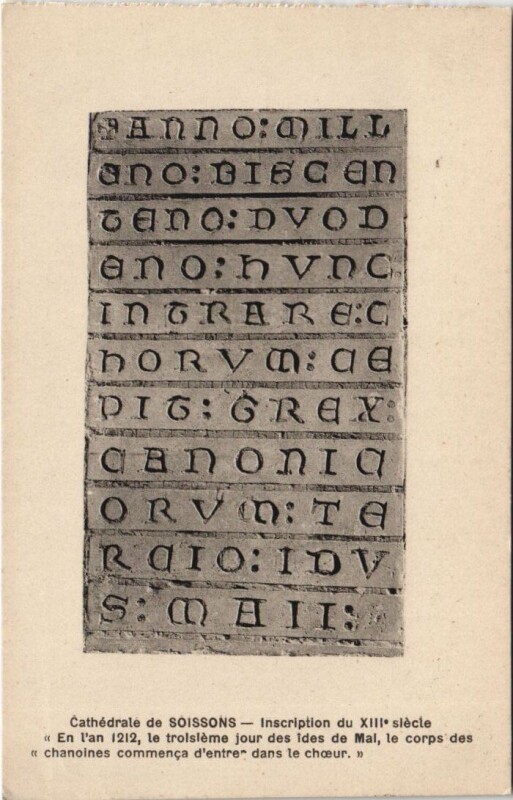 ✠ANNO:MILL
ENO:BISCEN
TENO:DVOD
ENO:HVNC
INTRARE:C
HORVM:CE
PIT:GREX:
CANONIC
ORVM:TE
RCIO:IDV
S:MAII:
Cathédrale de SOISSONS — Inscription du XIIIe siècle
« En l'an 1212, le troisième jour des ides de Mai, le corps des
« chanoines commença d'entrer dans le chœur. »